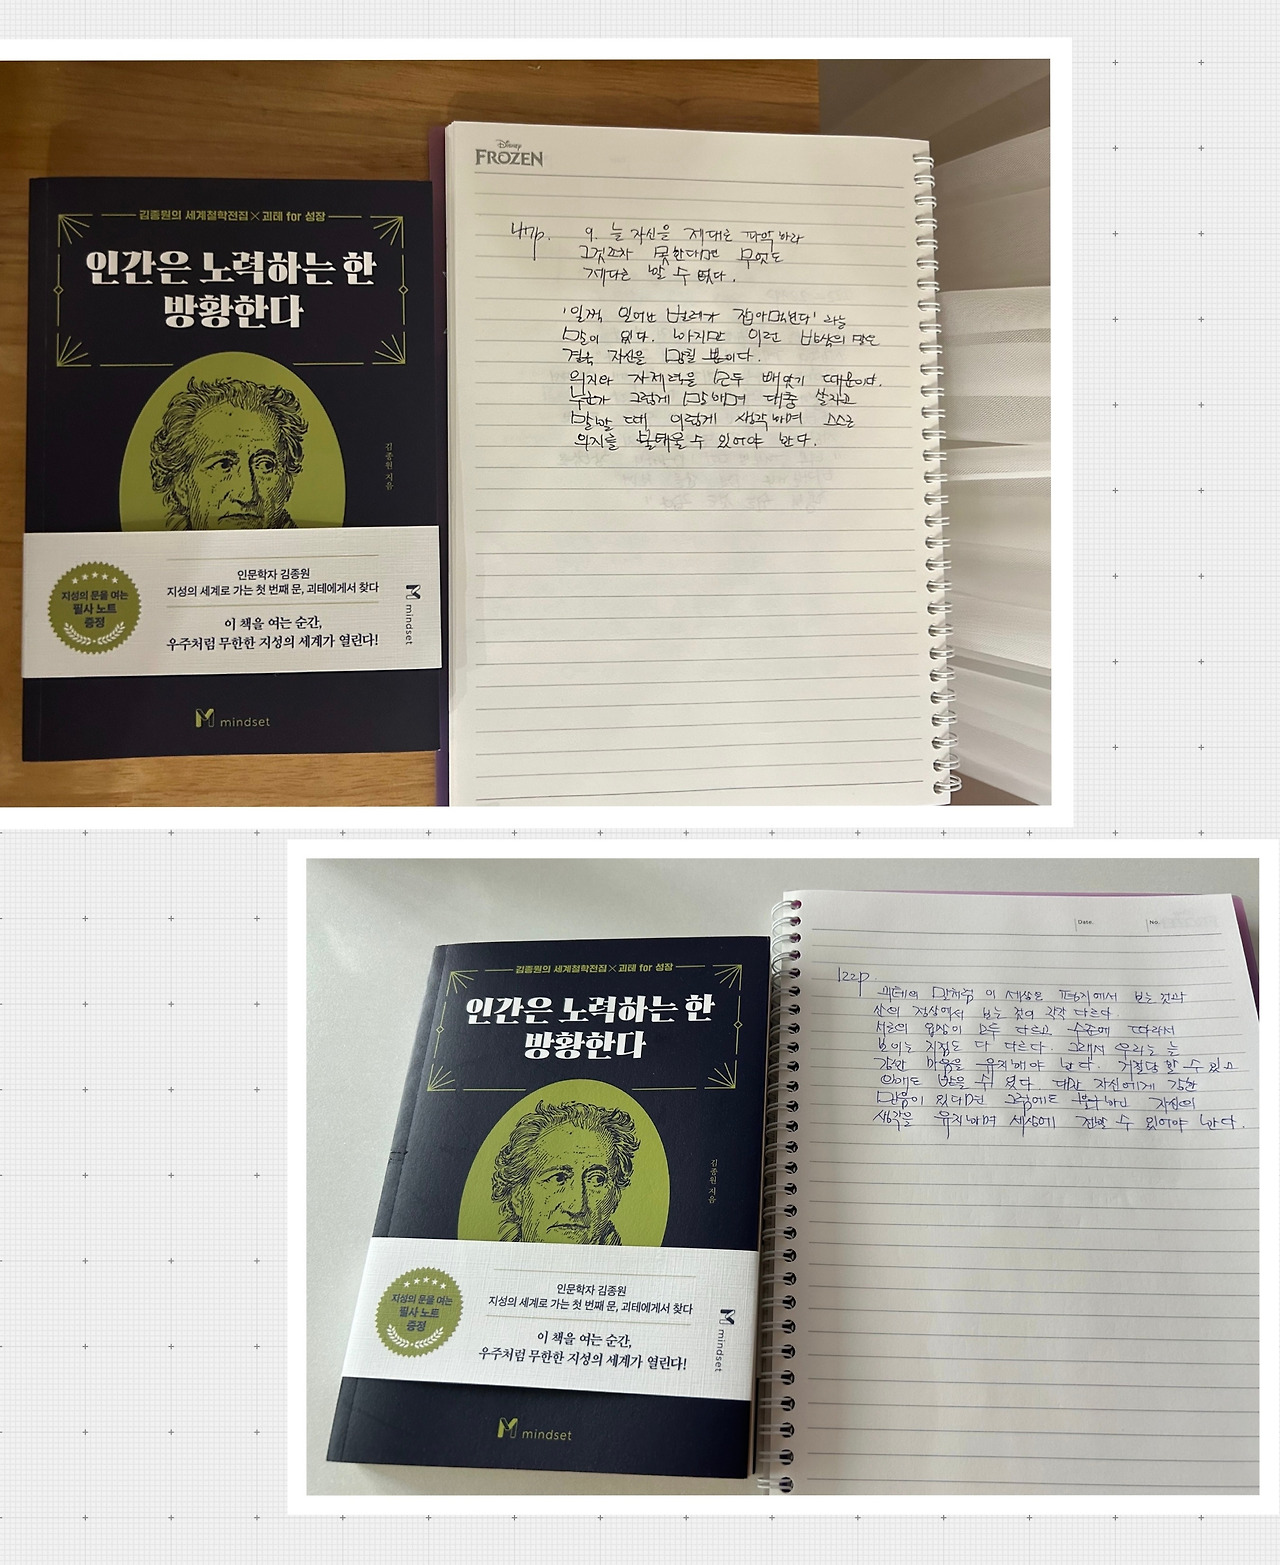 김종원의 세계철학전집×괴테 for 성장
인간은 노력하는 한
방황한다
김종원 지음
지성의 문을 여는
필사 노트
증정
인문학자 김종원
지성의 세계로 가는 첫 번째 문, 괴테에게서 찾다
이 책을 여는 순간,
우주처럼 무한한 지성의 세계가 열린다!
mindset
mindset
Disney
FROZEN
9. 늘 자신을 제대로 파악하라
그것조차 못한다면 무엇도
제대로 할 수 없다.
'일찍 일어난 벌레가 잡아먹힌다' 라는
말이 있다. 하지만 이런 방식의 말은
결국 자신을 망칠 뿐이다.
의지와 자제력을 모두 빼앗기 때문이다.
누군가 그렇게 말하며 대충 살자고
말할 때 이렇게 생각하며 스스로
의지를 불태울 수 있어야 한다.
김종원의 세계철학전집×괴테 for 성장
인간은 노력하는 한
방황한다
김종원 지음
지성의 문을 여는
필사 노트
증정
인문학자 김종원
지성의 세계로 가는 첫 번째 문, 괴테에게서 찾다
이 책을 여는 순간,
우주처럼 무한한 지성의 세계가 열린다!
mindset
mindset
Date.
No.
122p.
괴테의 말처럼 이 세상은 평지에서 보는 것과
산의 정상에서 보는 것이 각각 다르다.
서로의 입장이 모두 다르고 수준에 따라서
보이는 지점도 다 다르다. 그래서 우리는 늘
강한 마음을 유지해야 한다. 거절당할 수 있고
오해도 받을 수 있다. 다만 자신에게 강한
믿음이 있다면 그럼에도 불구하고 자신의
생각을 유지하며 세상에 전할 수 있어야 한다.